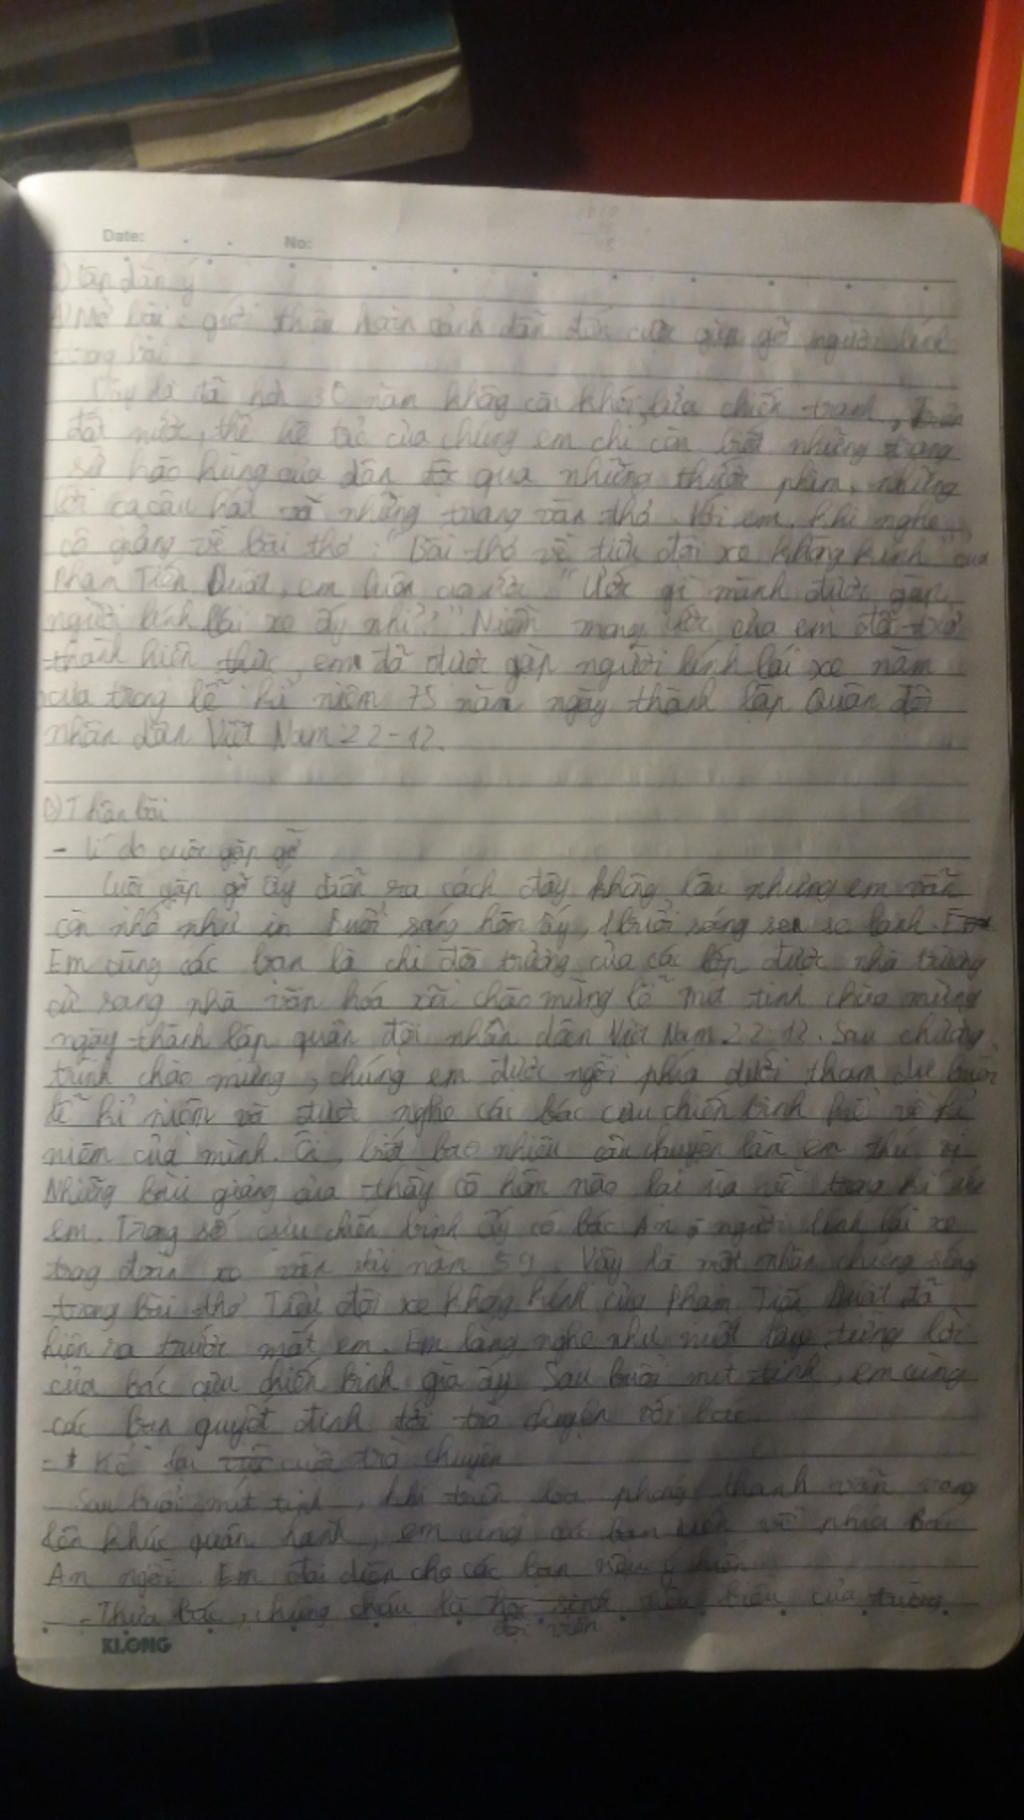 Date: No:
) Lập dàn ý
a) Mở bài: giới thiệu hoàn cảnh dẫn đến cuộc gặp gỡ người lính
trong bài
Vậy là đã hơn 30 năm không còn khói lửa chiến tranh, trên
đất nước, thế hệ trẻ của chúng em chỉ còn biết những trang
sử hào hùng của dân tộc qua những thước phim, những
lời ca câu hát và những trang văn thơ. Với em, khi nghe
cô giảng về bài thơ: "Bài thơ về tiểu đội xe không kính" của
Phạm Tiến Duật, em luôn ao ước "Ước gì mình được gặp
người lính lái xe ấy nhỉ?". Niềm mong ước của em đã trở
thành hiện thực, em đã được gặp người lính lái xe năm
xưa trong lễ kỉ niệm 75 năm ngày thành lập Quân đội
nhân dân Việt Nam 22-12.
b) Thân bài
- Lí do cuộc gặp gỡ
Cuộc gặp gỡ ấy diễn ra cách đây không lâu nhưng em vẫn
còn nhớ như in buổi sáng hôm ấy, buổi sáng se lạnh.
Em cùng các bạn là chi đội trưởng của các lớp được nhà trường
cử sang nhà văn hoá xã chào mừng lễ mít tinh chào mừng
ngày thành lập quân đội nhân dân Việt Nam 22-12. Sau chương
trình chào mừng, chúng em được ngồi phía dưới tham dự buổi
lễ kỉ niệm và được nghe các bác cựu chiến binh kể về kỉ
niệm của mình. Ôi, biết bao nhiêu câu chuyện làm em thú vị
Những bài giảng của thầy cô hôm nào lại ùa về trong kí ức
em. Trong số cựu chiến binh ấy có bác An, người lính lái xe
trong đoàn xe vận tải năm 59. Vậy là một nhân chứng sống
trong bài thơ Tiểu đội xe không kính của Phạm Tiến Duật đã
hiện ra trước mắt em. Em lắng nghe như nuốt lấy từng lời
của bác cựu chiến binh già ấy. Sau buổi mít tinh, em cùng
các bạn quyết định tới trò chuyện với bác.
- Kể lại cuộc trò chuyện
Sau buổi mít tinh, khi trên loa phóng thanh vẫn vang
lên khúc quân hành, em cùng các bạn tiến về phía bác
An ngồi. Em đại diện cho các bạn nêu ý kiến
- Thưa bác, chúng cháu là tiêu biểu của trường
đội viên
KLONG